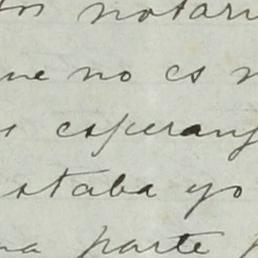 notari
ue no es
esperanz
staba yo
na parte